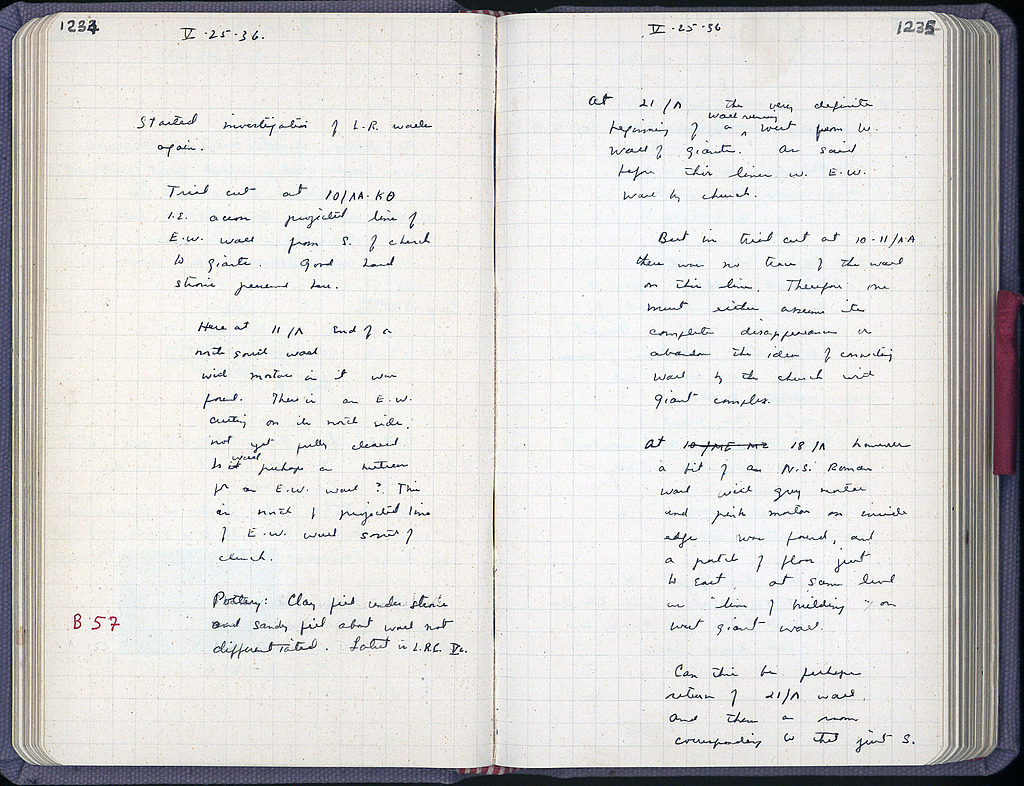 1234
V-25-36.
Started investigation of L.R. walls
again.
Trial cut at 10/ΛΑ-ΚΘ
i.e. across projected line of
E.W. wall from S. of church
to giants. Good hard
strosis preserved here.
Here at 11/Λ end of a
north south wall
with mortar in it was
found. There is an E.W.
cutting on its north side,
not yet fully cleared
Is it wall perhaps a return
for an E.W. wall? This
is north of projected line
of E.W. wall south of
church.
B 57
Pottery: Clay fill under strosis
and sandy fill about wall not
differentiated. Latest is L.R.C. Vc.
1235
V-25-36
At 21/Λ the very definite
beginning of a wall running west from W.
wall of giants. As said
before this lines w. E.W.
wall by church.
But in trial cut at 10-11/ΛΑ
there was no trace of the wall
on this line. Therefore one
must either assume its
complete disappearance or
abandon the idea of connecting
wall by the church with
giant complex.
At 18/Λ however
a bit of a N.S. Roman
wall with grey mortar
and pink mortar on inside
edge was found, and
a patch of floor just
to east, at same level
as "line of building" on
west giant wall.
Can this be perhaps
return of 21/Λ wall,
and then a room
corresponding to that just S.